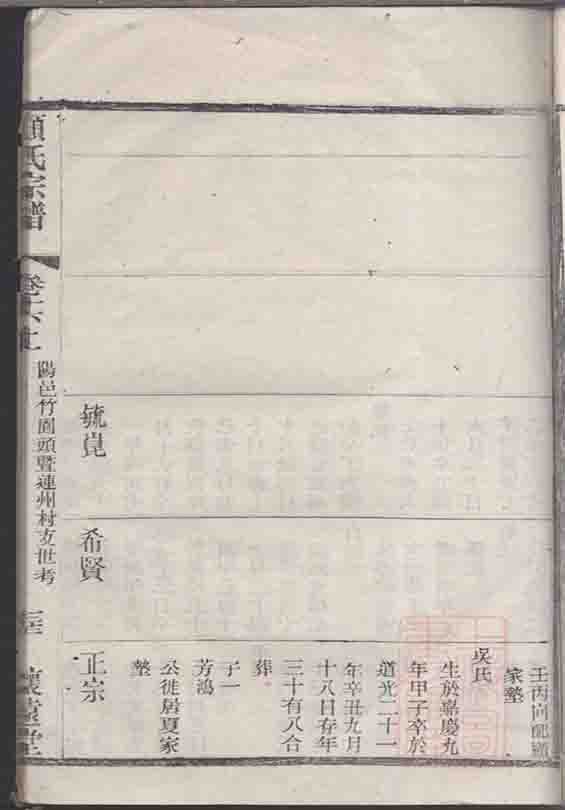 壬丙向配顧
家墊
吳氏
生於嘉慶九
年甲子卒於
道光二十一
年辛丑九月
十八日存年
三十有八合
葬
子一
芳鴻
公徙居夏家
墊
毓崑
希賢
正宗
顧氏宗譜
卷十六上
陽邑竹園頭暨連州村支世考
懷遠堂